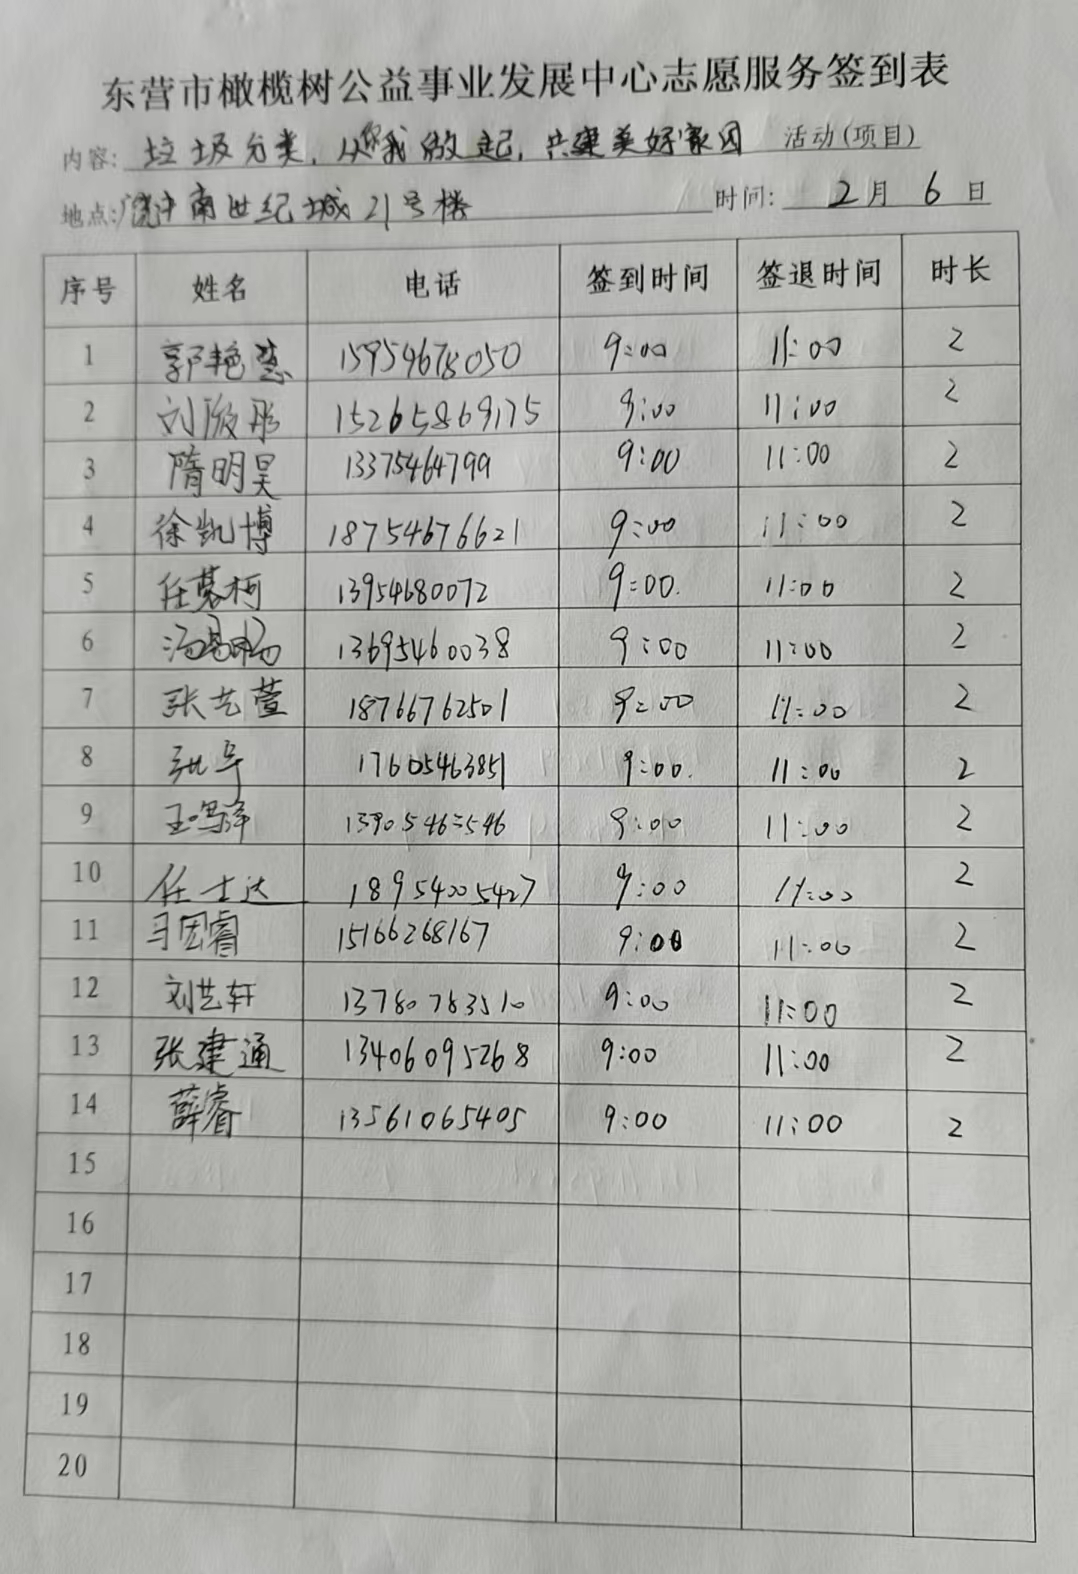 东营市橄榄树公益事业发展中心志愿服务签到表
内容: 垃圾分类,从我做起,共建美好家园 活动(项目)
地点: 南世纪城21号楼 时间: 2月6日
序号 姓名 电话 签到时间 签退时间 时长
1 郭艳慧 15954678050 9:00 11:00 2
2 刘 彤 15265869175 9:00 11:00 2
3 隋明昊 13375464799 9:00 11:00 2
4 徐凯博 18754676621 9:00 11:00 2
5 任慕柯 13954680072 9:00. 11:00 2
6 13695460038 9:00 11:00 2
7 张艺萱 18766762501 9:00 11:00 2
8 17605463851 9:00. 11:00 2
9 王 泽 9:00 11:00 2
10 任士达 18954005427 9:00 11:00 2
11 马 睿 15166268167 9:00 11:00 2
12 刘艺轩 13780783510 9:00 11:00 2
13 张建通 13406095268 9:00 11:00 2
14 薛睿 13561065405 9:00 11:00 2
15
16
17
18
19
20